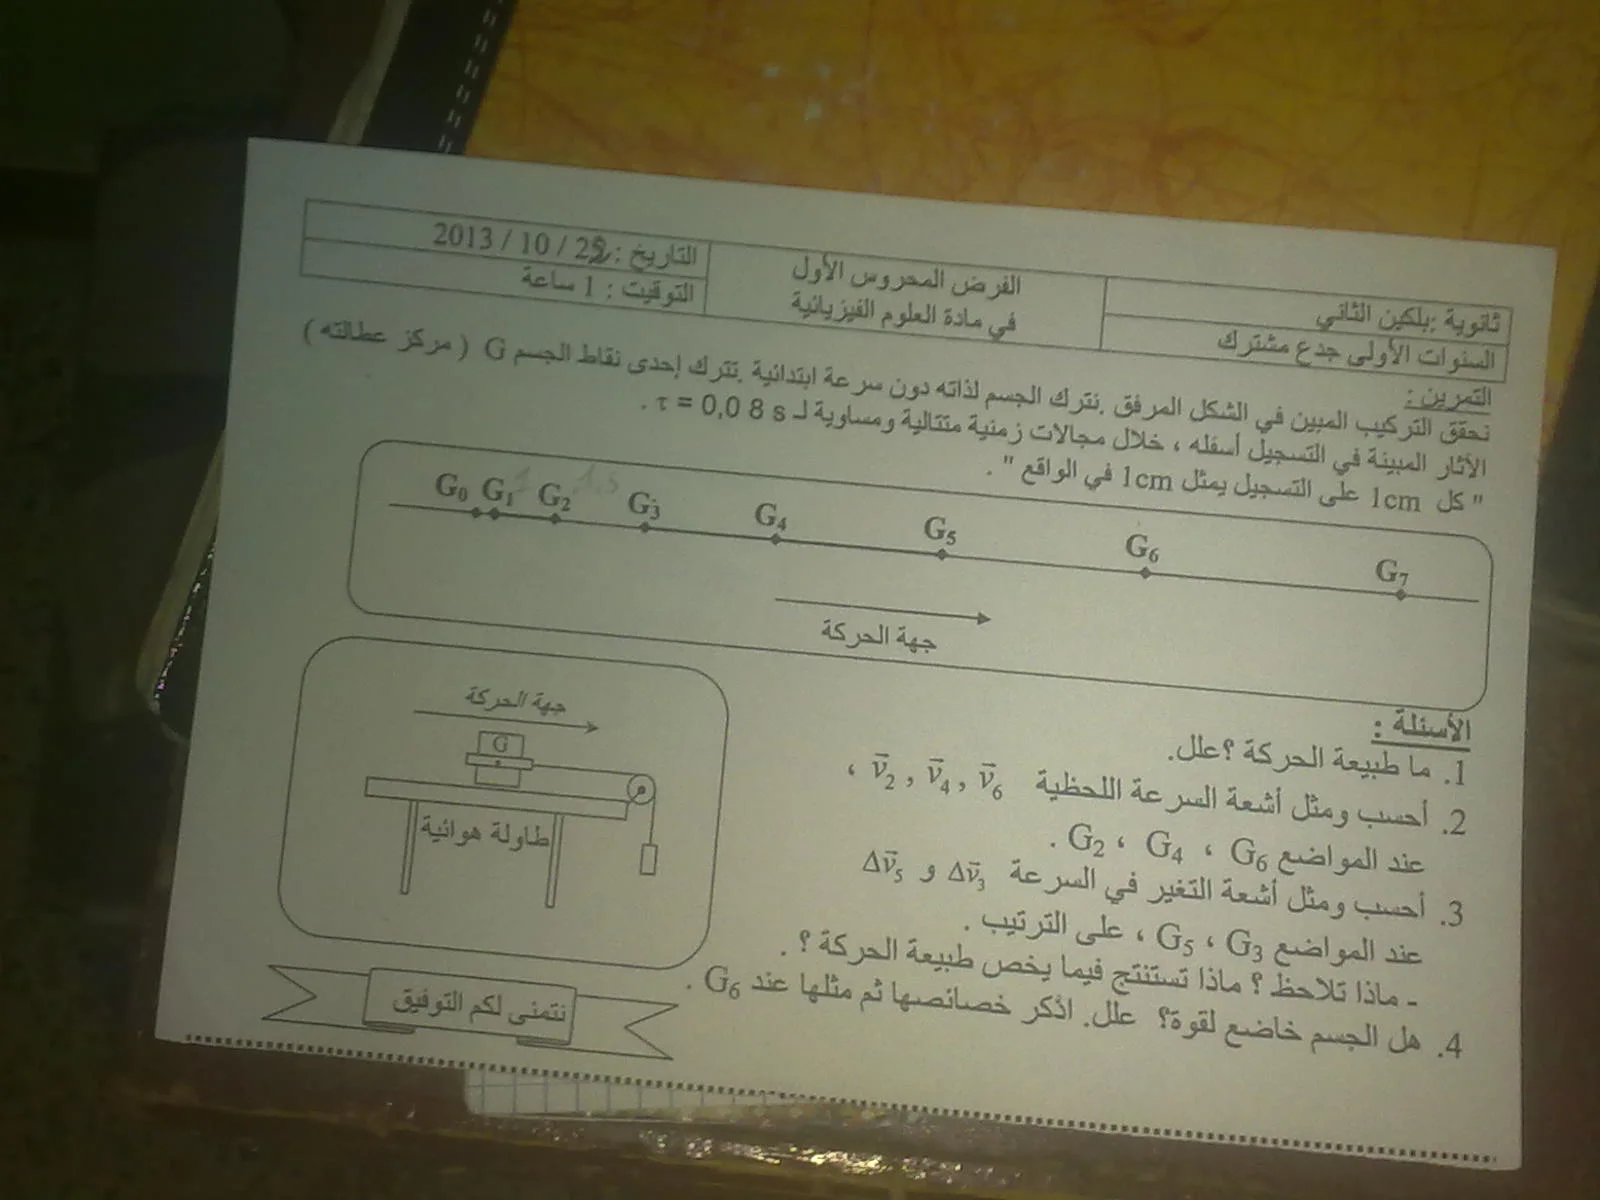 ثانوية :بلكين الثاني
السنوات الأولى جدع مشترك
الفرض المحروس الأول
في مادة العلوم الفيزيائية
التاريخ : 2013 / 10 / 2
التوقيت : 1 ساعة
التمرين :
نحقق التركيب المبين في الشكل المرفق .نترك الجسم لذاته دون سرعة ابتدائية .تترك إحدى نقاط الجسم G ( مركز عطالته )
الآثار المبينة في التسجيل أسفله ، خلال مجالات زمنية متتالية ومساوية لـ τ = 0,0 8 s .
" كل 1cm على التسجيل يمثل 1cm في الواقع " .
G₀ G₁ G₂ G₃ G₄ G₅ G₆ G₇
جهة الحركة
الأسئلة :
1. ما طبيعة الحركة ؟علل.
2. أحسب ومثل أشعة السرعة اللحظية v⃗₂ , v⃗₄ , v⃗₆ ،
عند المواضع G₂ ، G₄ ، G₆ .
3. أحسب ومثل أشعة التغير في السرعة Δv⃗₃ و Δv⃗₅
عند المواضع G₃ ، G₅ ، على الترتيب .
- ماذا تلاحظ ؟ ماذا تستنتج فيما يخص طبيعة الحركة ؟ .
4. هل الجسم خاضع لقوة؟ علل. اذكر خصائصها ثم مثلها عند G₆ .
جهة الحركة
G
طاولة هوائية
نتمنى لكم التوفيق